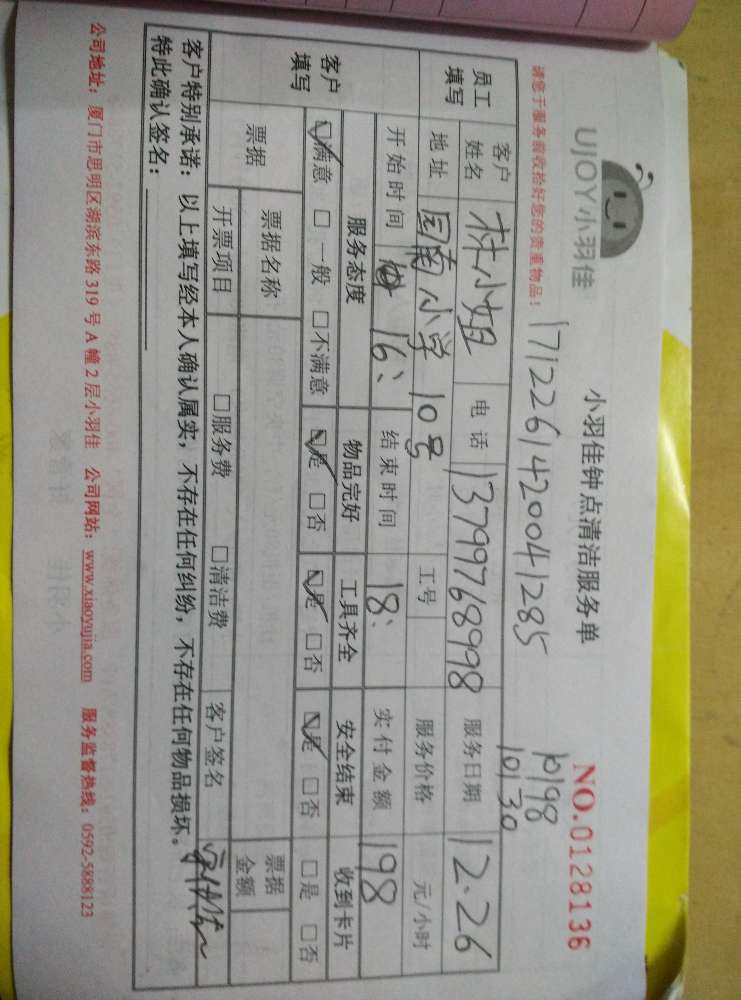 UJOY小羽佳
小羽佳钟点清洁服务单
NO.0128136
请您于服务前收拾好您的贵重物品！
1712261420041285
10198
10130
员工填写
客户姓名 林小姐 电话 13799768998 服务日期 12.26
地址 园南小学10号 工号 服务价格 元/小时
开始时间 16: 结束时间 18: 实付金额 198
客户填写
服务态度 物品完好 工具齐全 安全结束 收到卡片
☑满意 □一般 □不满意 ☑是 □否 ☑是 □否 ☑是 □否 □是 □否
票据 票据名称 票据金额
开票项目 □服务费 □清洁费 客户签名
客户特别承诺：以上填写经本人确认属实，不存在任何纠纷，不存在任何物品损坏。
特此确认签名：
公司地址：厦门市思明区湖滨东路319号A幢2层小羽佳 公司网站：www.xiaoyujia.com 服务监督热线：0592-5888123